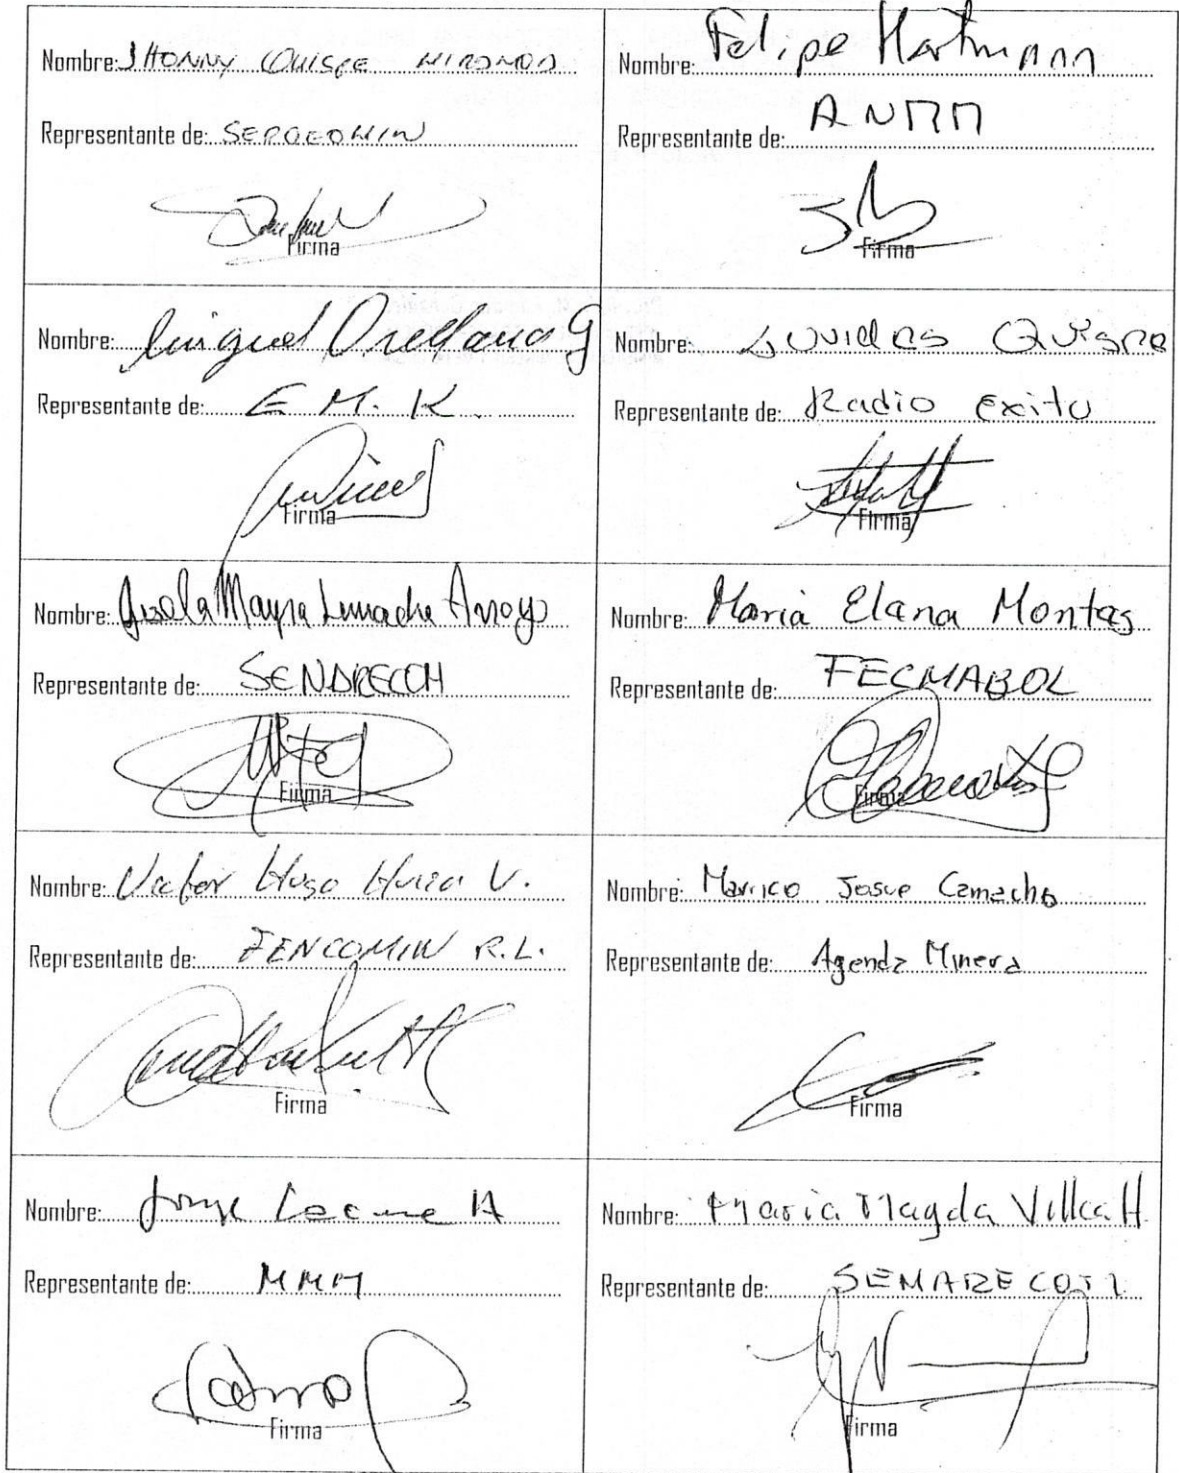 Nombre: JHONNY QUISPE MIRANDA
Representante de: SERGEOMIN
Firma
Nombre: Felipe Hartmann
Representante de: ANMM
Firma
Nombre: Miguel Orellana G
Representante de: E M. K.
Firma
Nombre: Quispe
Representante de: Radio Exito
Firma
Nombre: Mayra Lumache Arroyo
Representante de: SENDRECOM
Firma
Nombre: Maria Elana Montas
Representante de: FECMABOL
Firma
Nombre: Victor Hugo V.
Representante de: FENCOMIN R.L.
Firma
Nombre: Josue Camacho
Representante de: Agenda Minera
Firma
Nombre: Jorge A
Representante de: MMM
Firma
Nombre: Maria Magda Villca H.
Representante de:
Firma